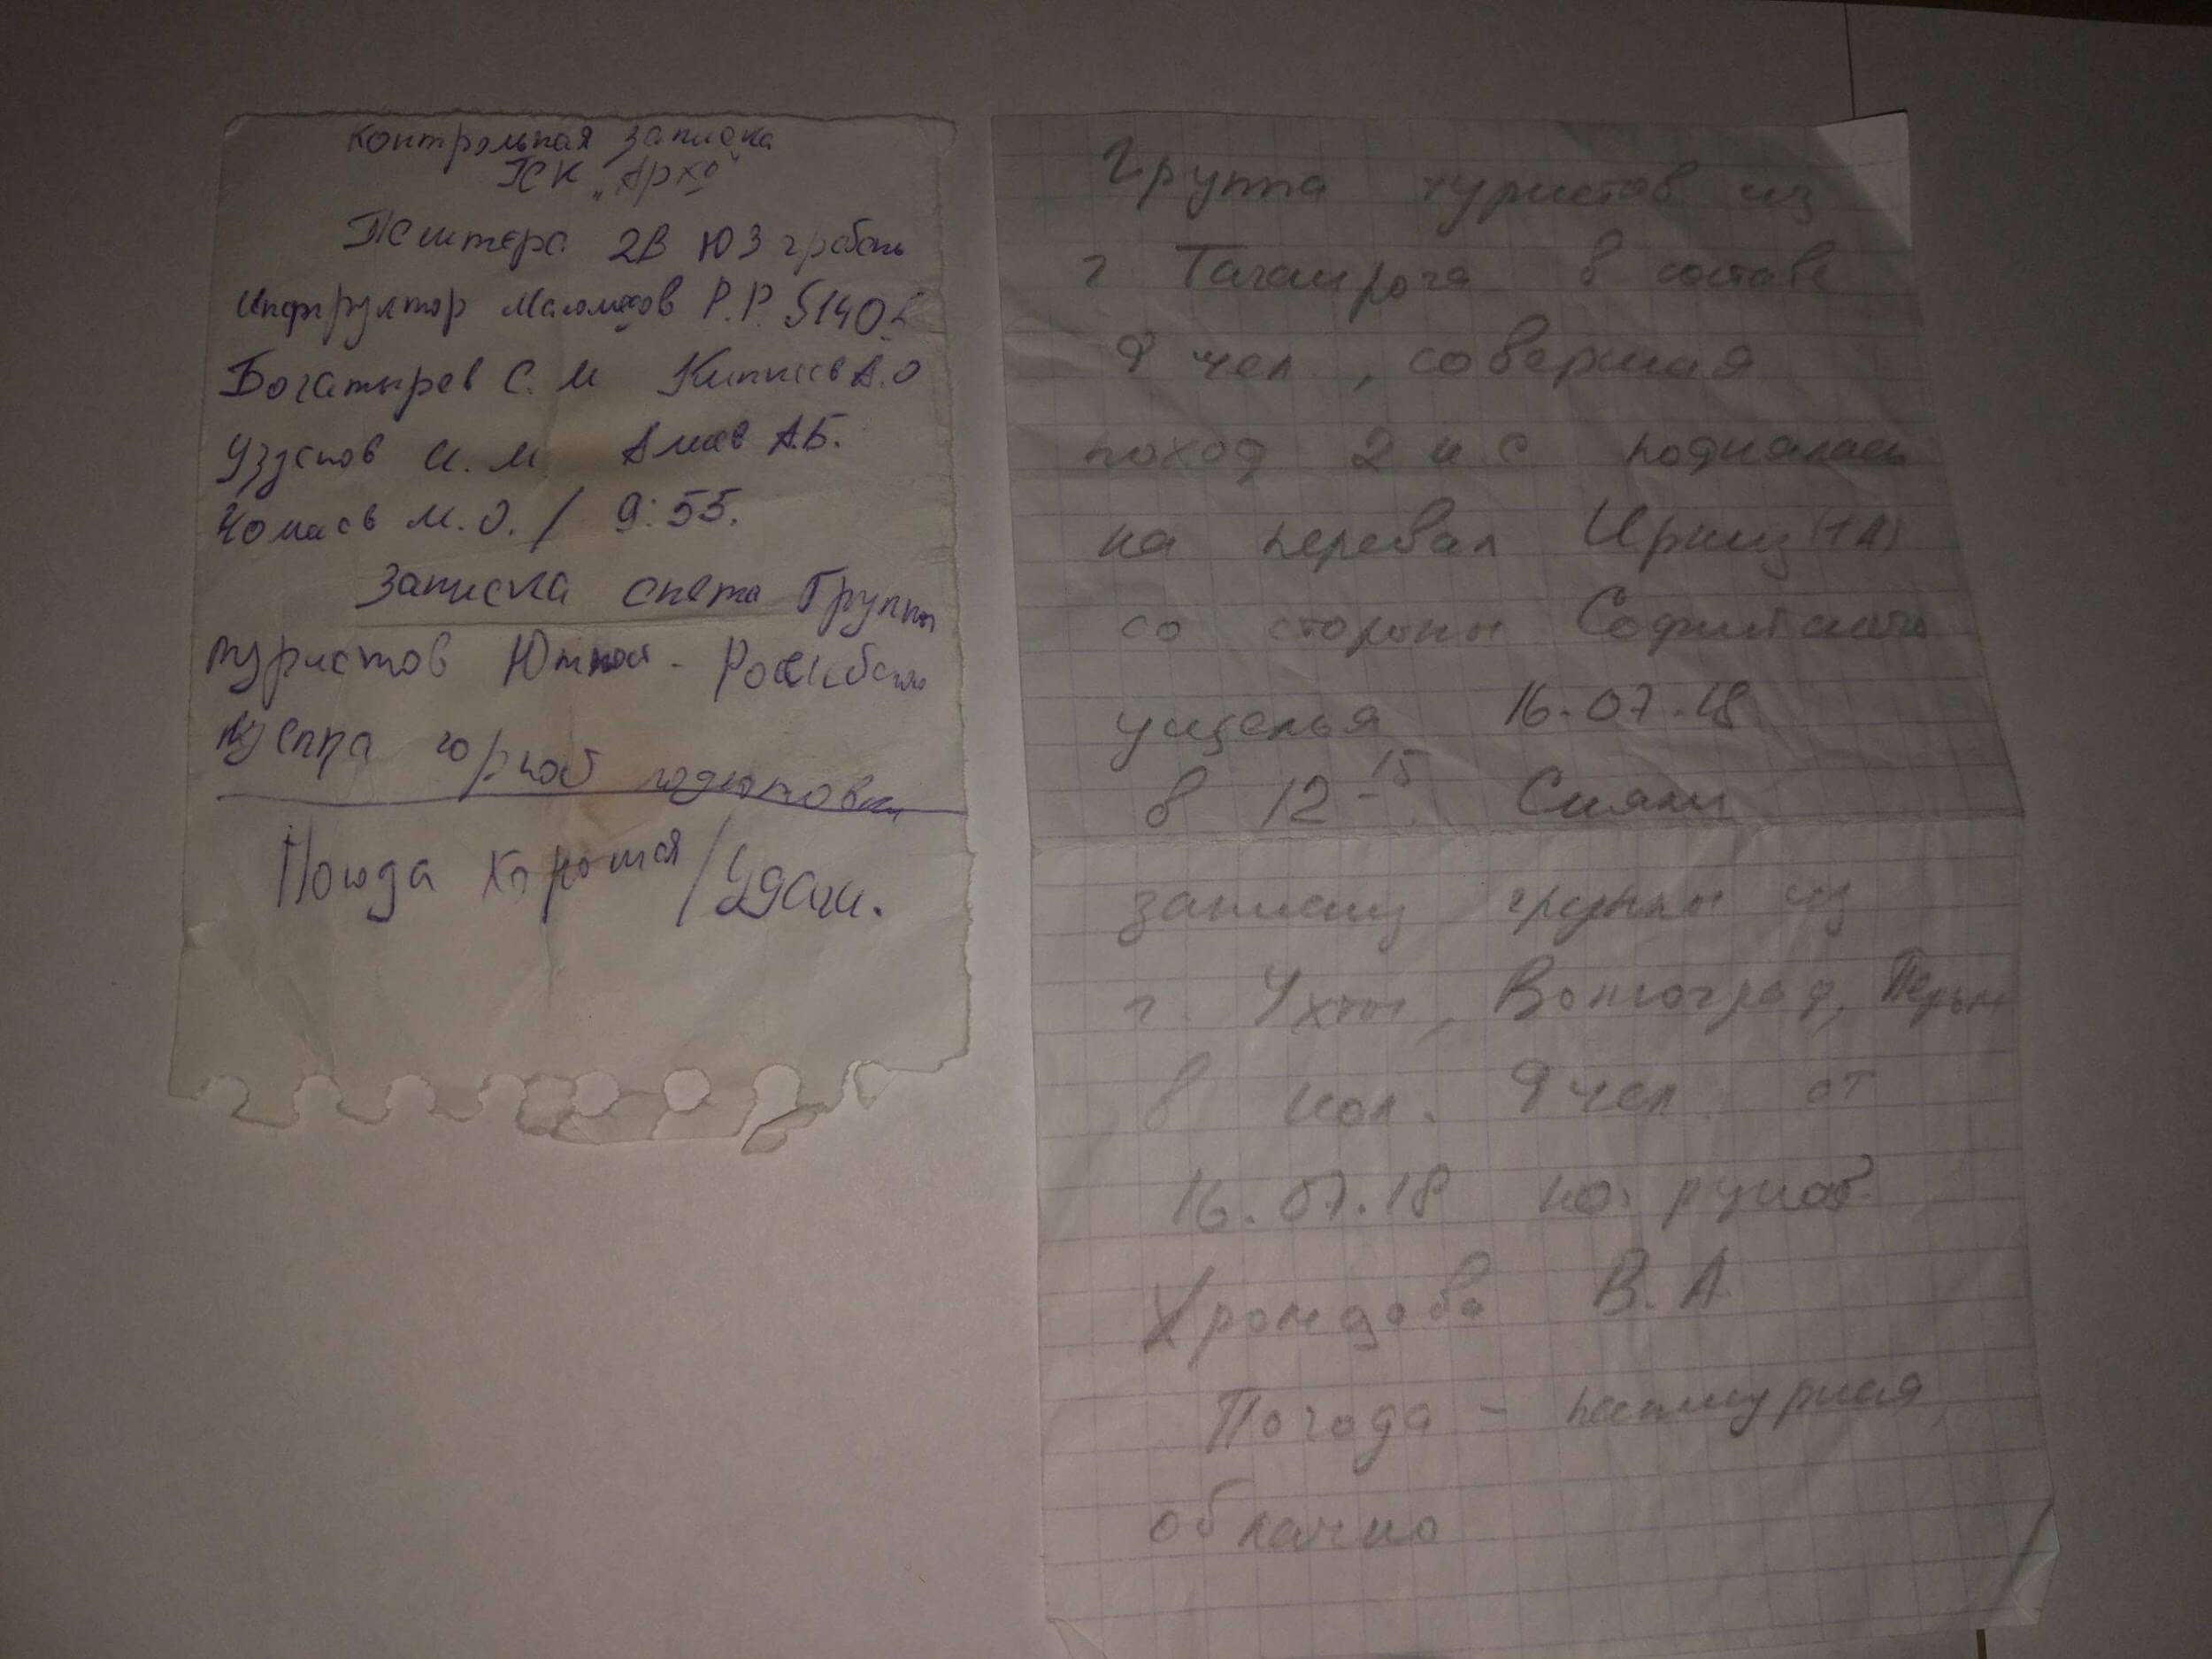 Контрольная записка
ТСК „Архо"
Пештера 2В ЮЗ гребень
Инструктор Р.Р. 5140
Богатырев С. М А.О
Узденов И. М А.Б.
М.О. / 9:55.
Записка снета Группы
туристов Южно - Российского
центра горной подготовки
Погода хорошая / Удачи.
Группа туристов из
г Таганрога в составе
чел, совершая
поход 2 к с поднялась
на перевал Иркиз (1А)
со стороны Софийского
ущелья 16.07.18
в 12-15 Сняли
записку группы из
г. Ухты, Волгоград, Пермь
в кол. 9 чел. от
16.07.18 руков.
В. А
Погода - пасмурная,
облачно